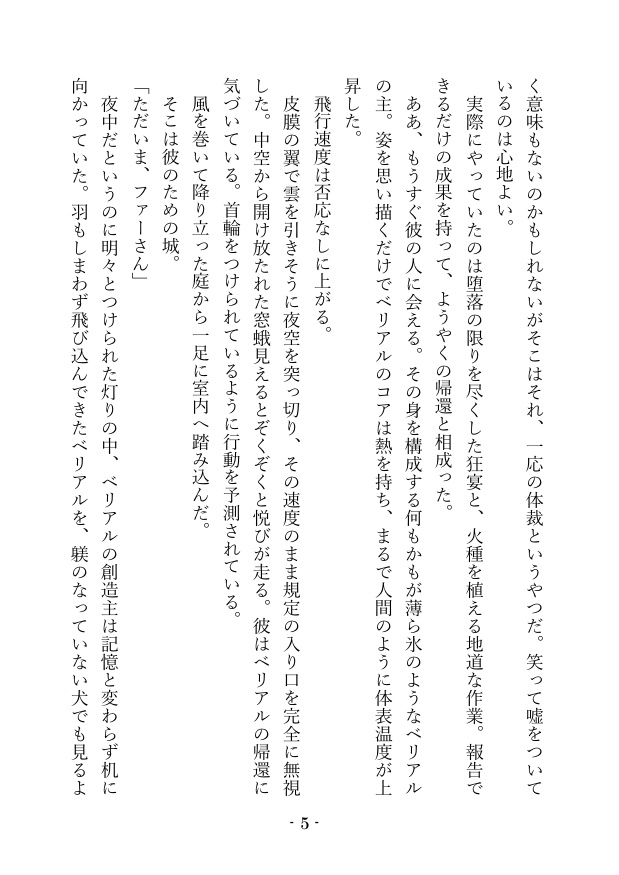 く意味もないのかもしれないがそこはそれ、一応の体裁というやつだ。笑って嘘をついて
いるのは心地よい。
　実際にやっていたのは堕落の限りを尽くした狂宴と、火種を植える地道な作業。報告で
きるだけの成果を持って、ようやくの帰還と相成った。
　ああ、もうすぐ彼の人に会える。その身を構成する何もかもが薄ら氷のようなベリアル
の主。姿を思い描くだけでベリアルのコアは熱を持ち、まるで人間のように体表温度が上
昇した。
　飛行速度は否応なしに上がる。
　皮膜の翼で雲を引きそうに夜空を突っ切り、その速度のまま規定の入り口を完全に無視
した。中空から開け放たれた窓蛾見えるとぞくぞくと悦びが走る。彼はベリアルの帰還に
気づいている。首輪をつけられているように行動を予測されている。
　風を巻いて降り立った庭から一足に室内へ踏み込んだ。
　そこは彼のための城。
「ただいま、ファーさん」
　夜中だというのに明々とつけられた灯りの中、ベリアルの創造主は記憶と変わらず机に
向かっていた。羽もしまわず飛び込んできたベリアルを、躾のなっていない犬でも見るよ
- 5 -